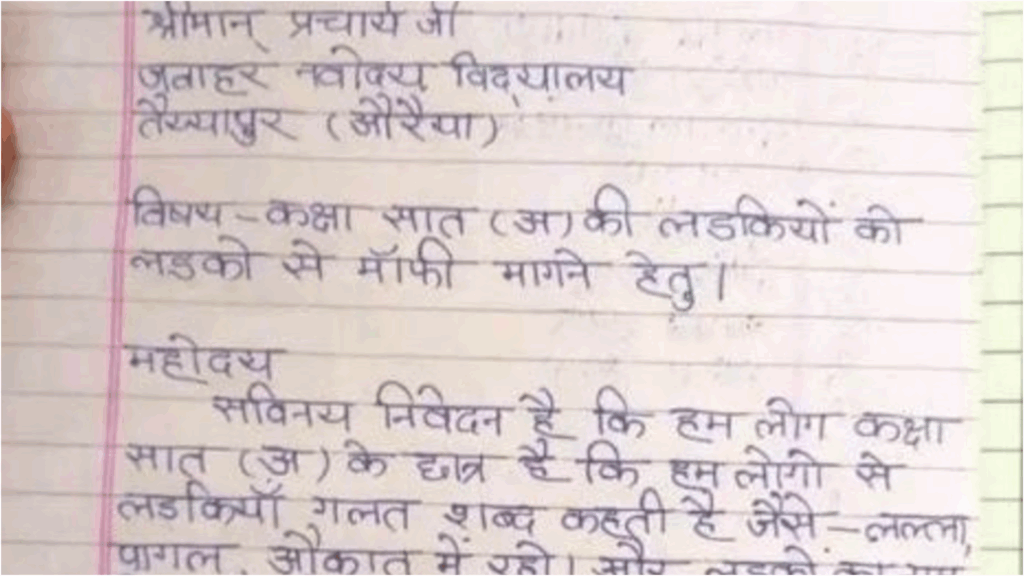 श्रीमान् प्रचार्य जी
जवाहर नवोदय विद्यालय
तैय्यापुर (औरैया)
विषय - कक्षा सात (अ) की लडकियों को
लडको से मॉफी मागने हेतु।
महोदय
सविनय निवेदन है कि हम लोग कक्षा
सात (अ) के छात्र है कि हम लोगो से
लडकियाँ गलत शब्द कहती है जैसे - लल्ला,
पागल, औकात में रहो। और लडकों का